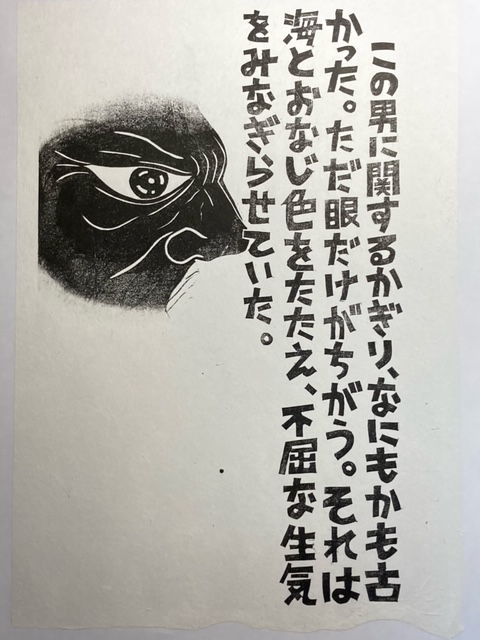 この男に関するかぎり、なにもかも古
かった。ただ眼だけがちがう。それは
海とおなじ色をたたえ、不屈な生気
をみなぎらせていた。